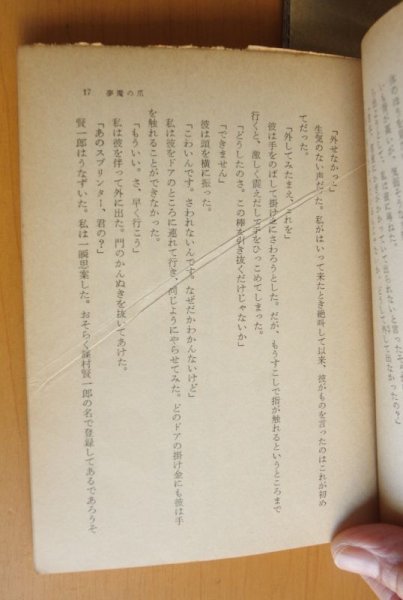 夢魔の爪
17
「外せなかっ」
生気のない声だった。私がはいって来たとき絶叫して以来、彼がものを言ったのはこれが初め
てだった。
「外してみたまえ、これを」
彼は手をのばして掛け金にさわろうとした。だが、もうすこしで指が触れるというところまで
行くと、激しく震えだして手をひっこめてしまった。
「どうしたのさ。この棒を引き抜くだけじゃないか」
「できません」
彼は頭を横に振った。
「こわいんです。さわれないんです。なぜだかわかんないけど」
私は彼をドアのところに連れて行き、同じようにやらせてみた。どのドアの掛け金にも彼は手
を触れることができなかった。
「もういい。さ、早く行こう」
私は彼を伴って外に出た。門のかんぬきを抜いてあけた。
「あのスプリンター、君の？」
賢一郎はうなずいた。私は一瞬思案した。おそらく 村賢一郎の名で登録してあるであろうそ